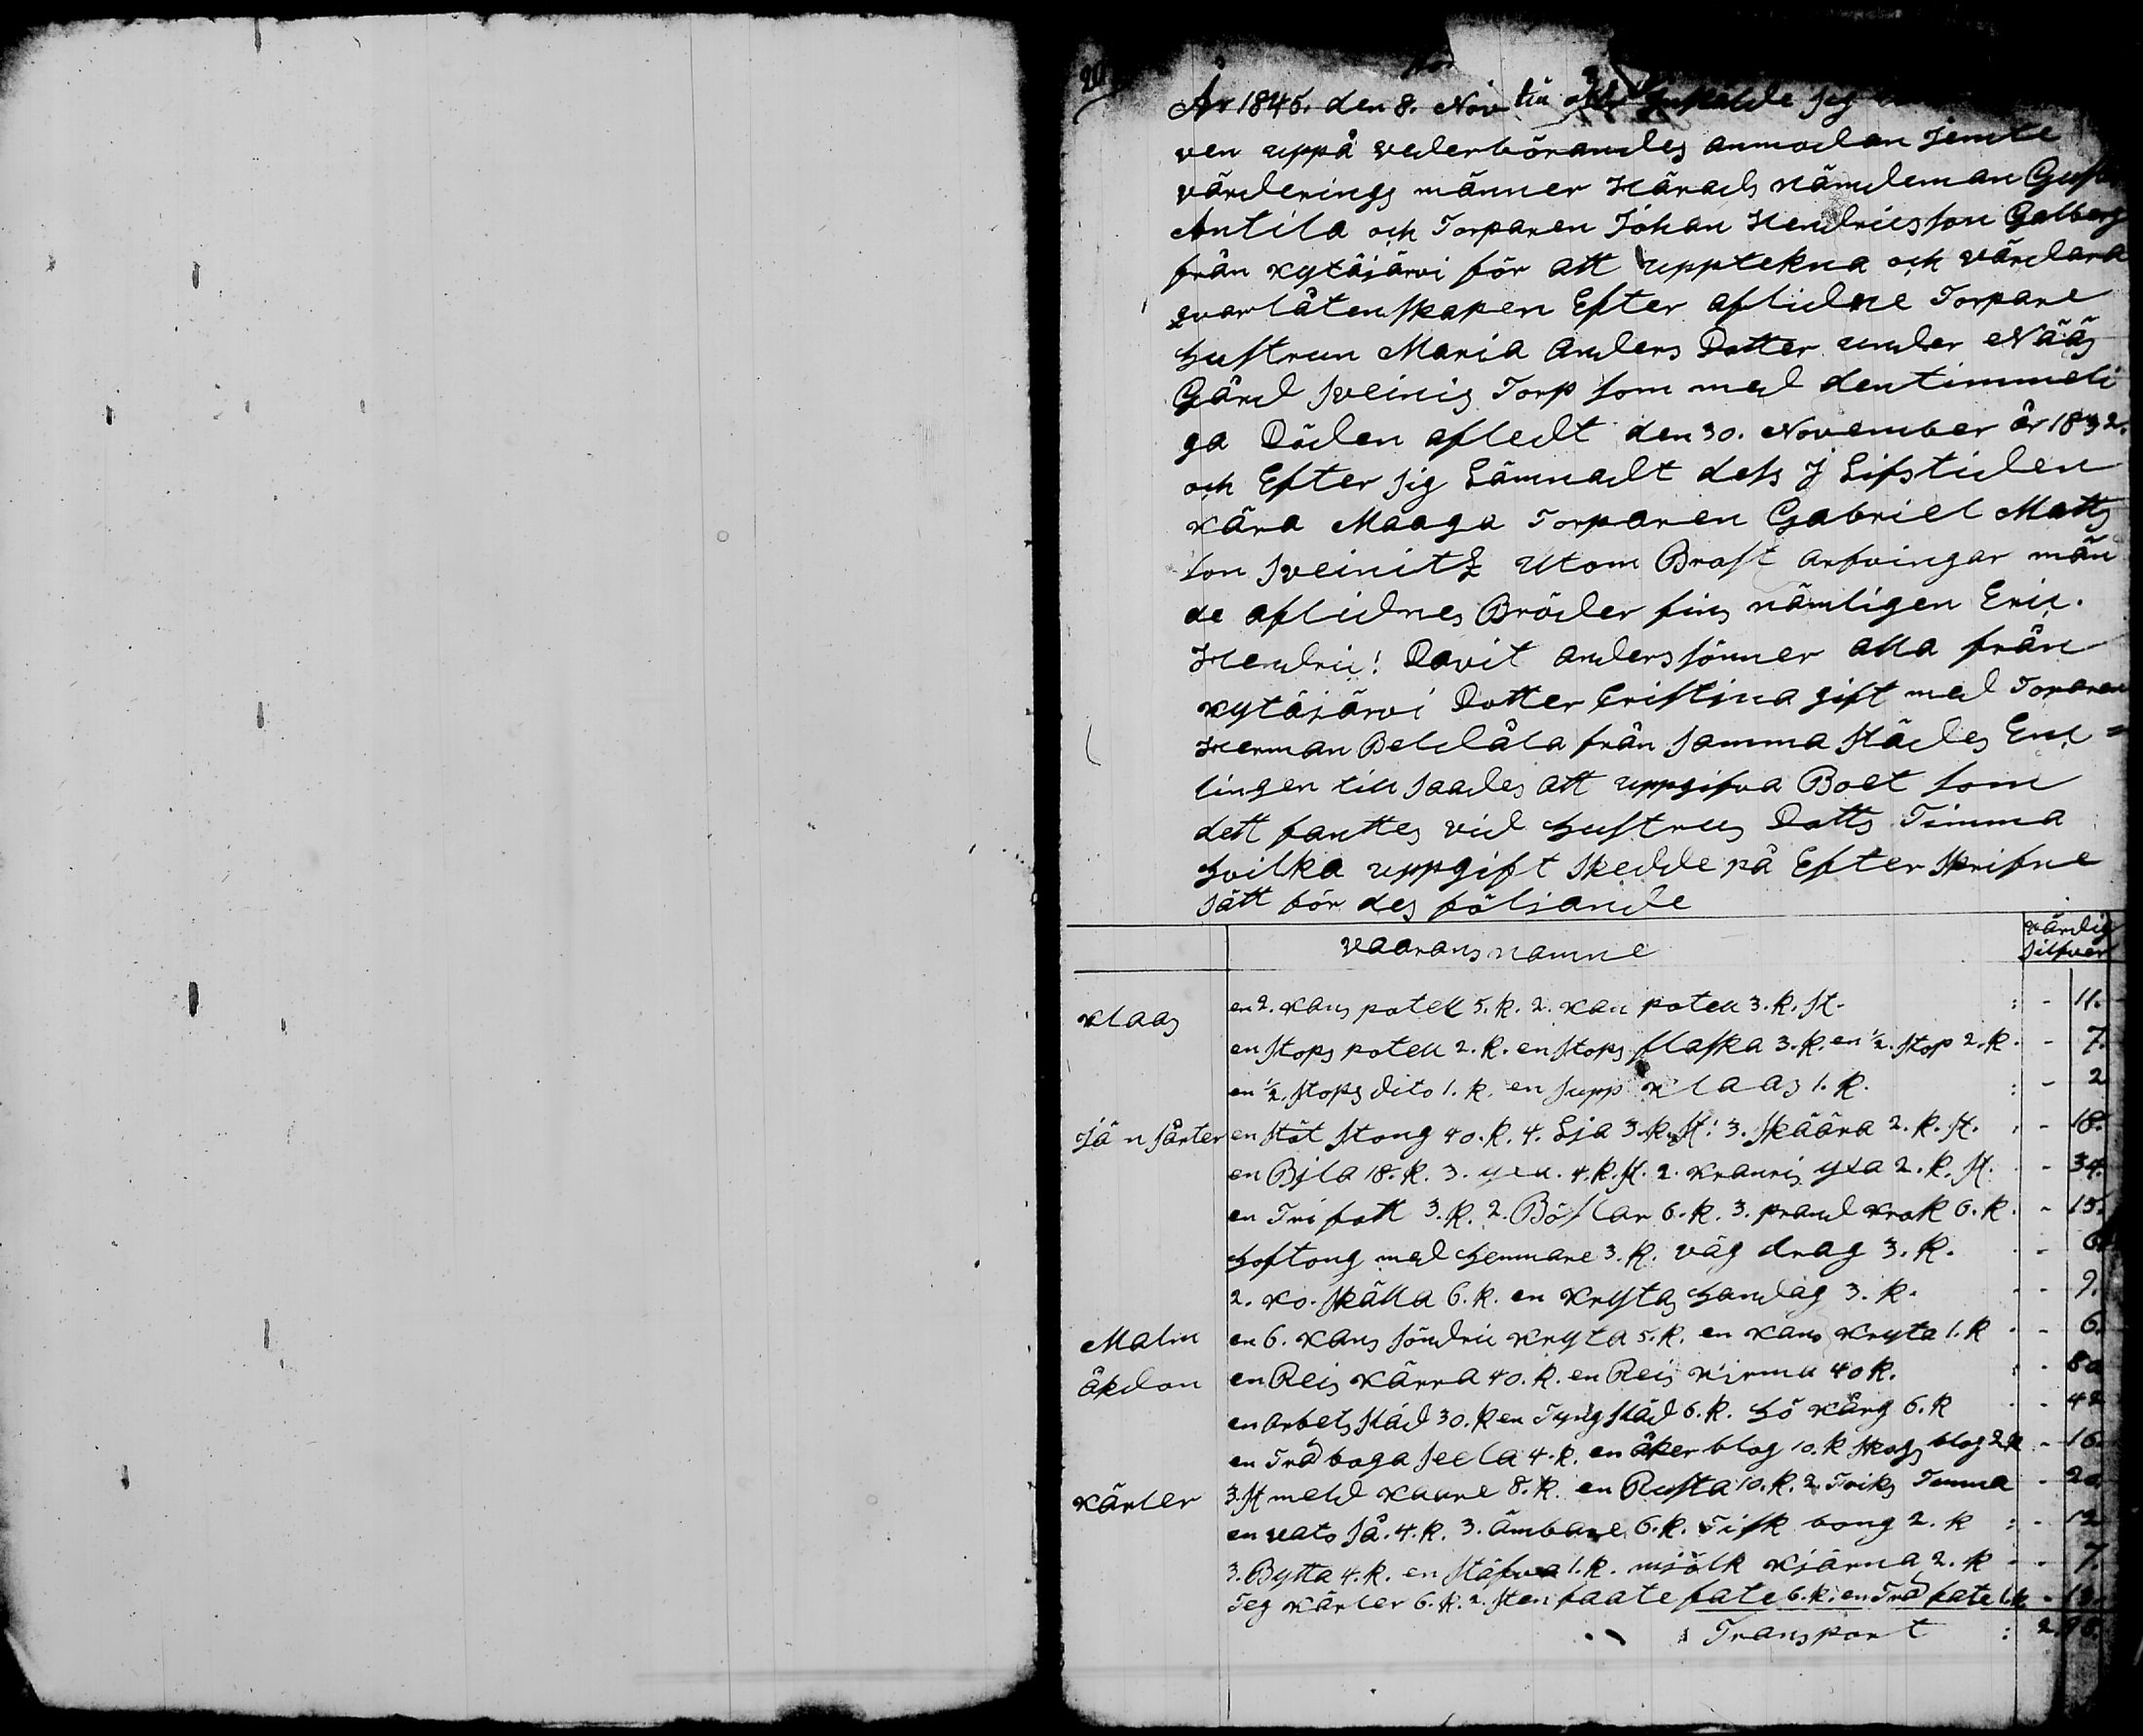 År 1845. den 8. Nov
ven uppå vederbörandes anmodan jemte
värderings männer Härads nämdeman
Antila och Torparen Johan Hendricsson Galberg
från Kytäjärvi för att upptekna och värdara
qvarlåtenskapen Efter aflidne Torpare
hustrun Maria Anders Dotter under Nääs
Gård Sveinis Torp som med den timmeli
ga Döden afledt den 30. November år 1832.
och Efter sig Lämnadt dess J Lifstiden
Kära Maaga Torparen Gabriel Matts
son Sveinitz Utom Brost arfvingar män
de aflidnes Bröder fins nämligen Eric.
Hendric! Davit anderssönner alla från
Kytäjärvi Dotter Cristina gift med Toraren
Herman Beldåla från samma städes Ene
lingen till saades att uppgifva Boet som
dett fanttes vid hustrus Datts Timma
hvilka uppgift skedde på Efter skrifne
sätt för des följande
vaarans namne
värdig
silfver
Klaas en 2. Kans potell 5. k. 2. Kan potell 3. k. st. : - 11.
en stops potell 2. k. en stops flaska 3. k. en ½. stop 2. k. - 7.
en ½. stops dito 1. k. en supp Klaas 1. k. : - 2
Jänsårter en stöt stong 40. k. 4. Lja 3. k. st: 3. skäära 2. k. st. : - 18.
en Bjla 18. k. 3. yxa. 4. k. st. 2. Kranris yxa 2. k. st. - 34.
en Tri fott 3. k. 2. Böslar 6. k. 3. prand krok 6. k. - 15.
hoftong med hemmare 3. k. väg drag 3. k. - 6.
2. Ko. skälla 6. k. en Krystas handag 3. k. - 9.
Malm en 6. Kans söndric Kryta 5. k. en Kans Kryta 1. k - 6.
åkdon en Reis Kärra 40. k. en Reis Kirma 40 k. : - 80
en arbets släd 30. k en Tyng släd 6. k. hö Kårg 6. k - 42
en Trä boga seela 4. k. en åker blog 10. k skogs blog 2 k - 16.
Kärler 3. st meld Kaare 8. k. en Rusta 10. k. 2. Triks Tunna - 20.
en vats så. 4. k. 3. ämbare 6. k. Fisk bong 2. k : - 12
3. Bytta 4. k. en stäfva 1. k. mjölk Kjärna 2. k - - 7.
Teg Kärler 6. k. 2. sten faate fate 6. k. en Trä fate 1. k. - 13.
Transport : 2.98.